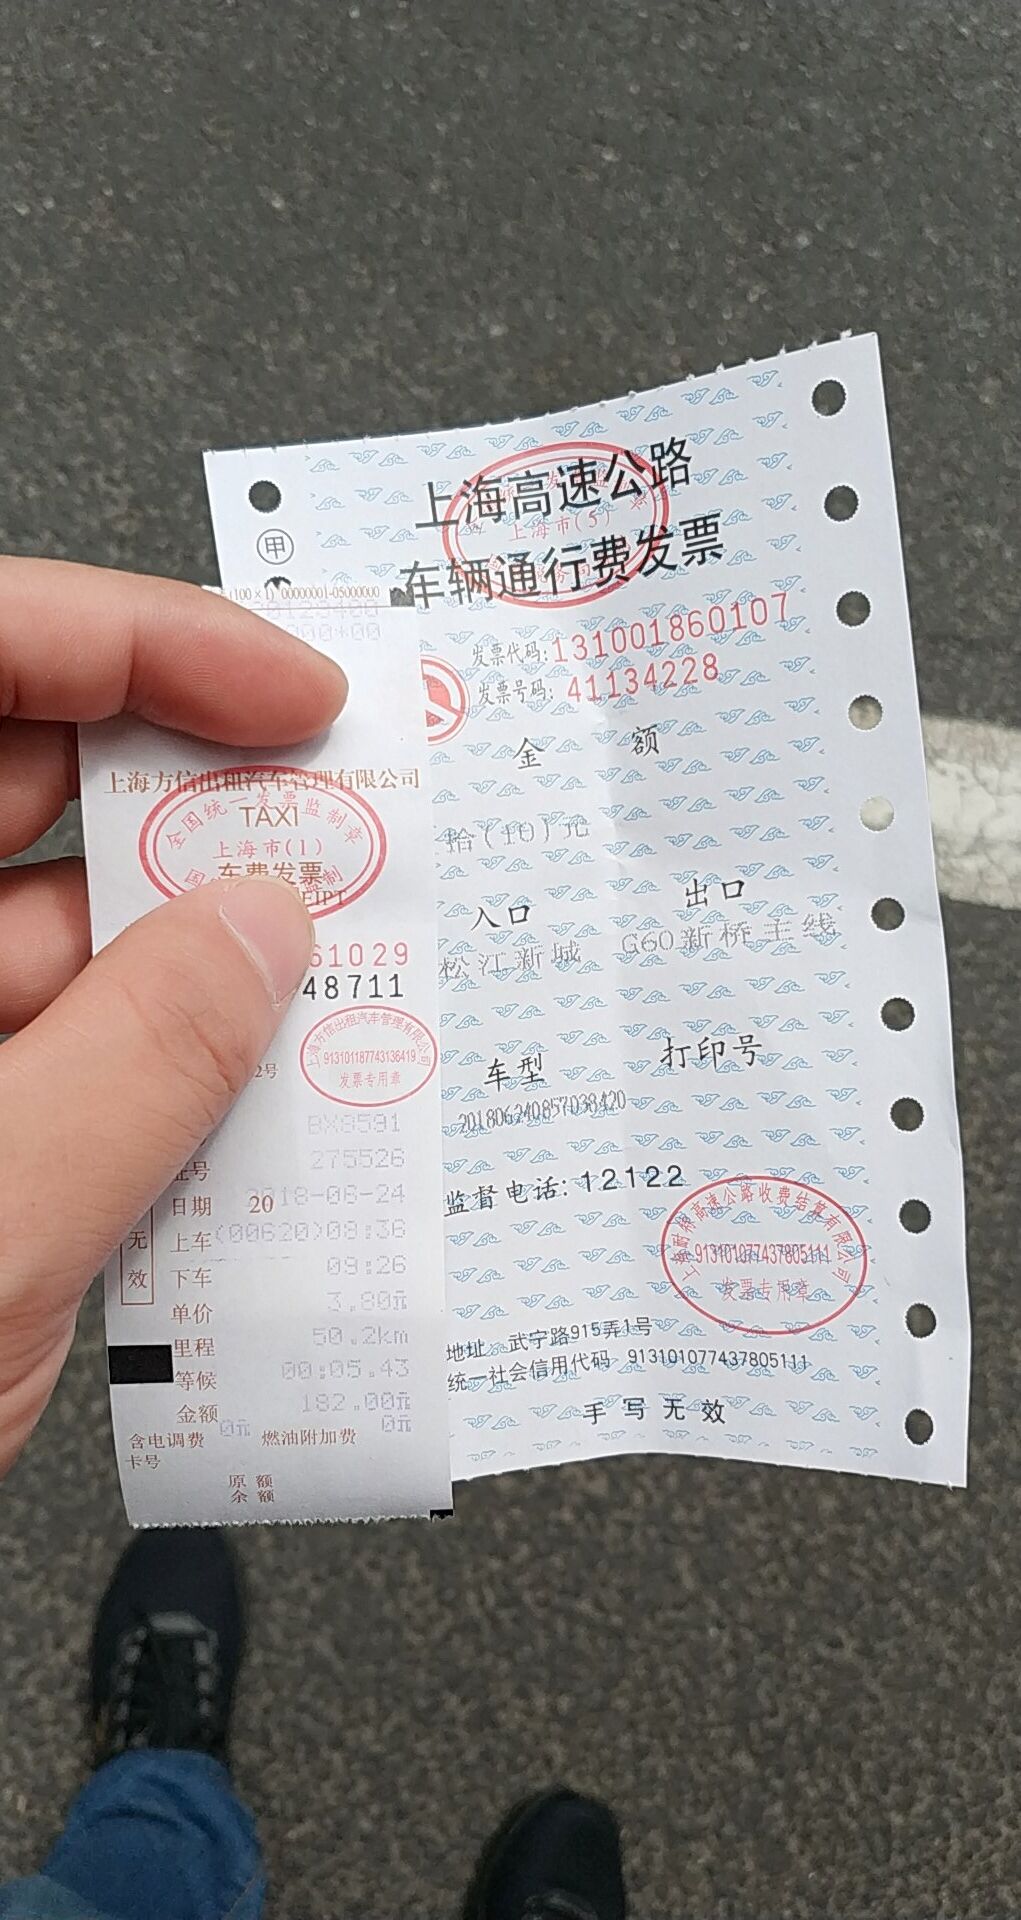 上海高速公路
车辆通行费发票
上海市(5)
甲
发票代码:131001860107
发票号码:41134228
金 额
拾(10)元
入口 出口
松江新城 G60新桥主线
车型 打印号
201806240857038420
监督电话:12122
913101077437805111
发票专用章
地址 武宁路915弄1号
统一社会信用代码 913101077437805111
手写无效
(100×1) 00000001-05000000
上海方信出租汽车管理有限公司
全国统一发票监制章
TAXI
上海市(1)
车费发票
61029
48711
上海方信出租汽车管理有限公司
913101187743136419
发票专用章
2号
BX8591
证号 275526
日期 2018-06-24
上车 (00620)08:36
下车 09:26
单价 3.80元
里程 50.2km
等候 00:05.43
金额 182.00元
含电调费 0元 燃油附加费 0元
卡号
原额
余额
无效